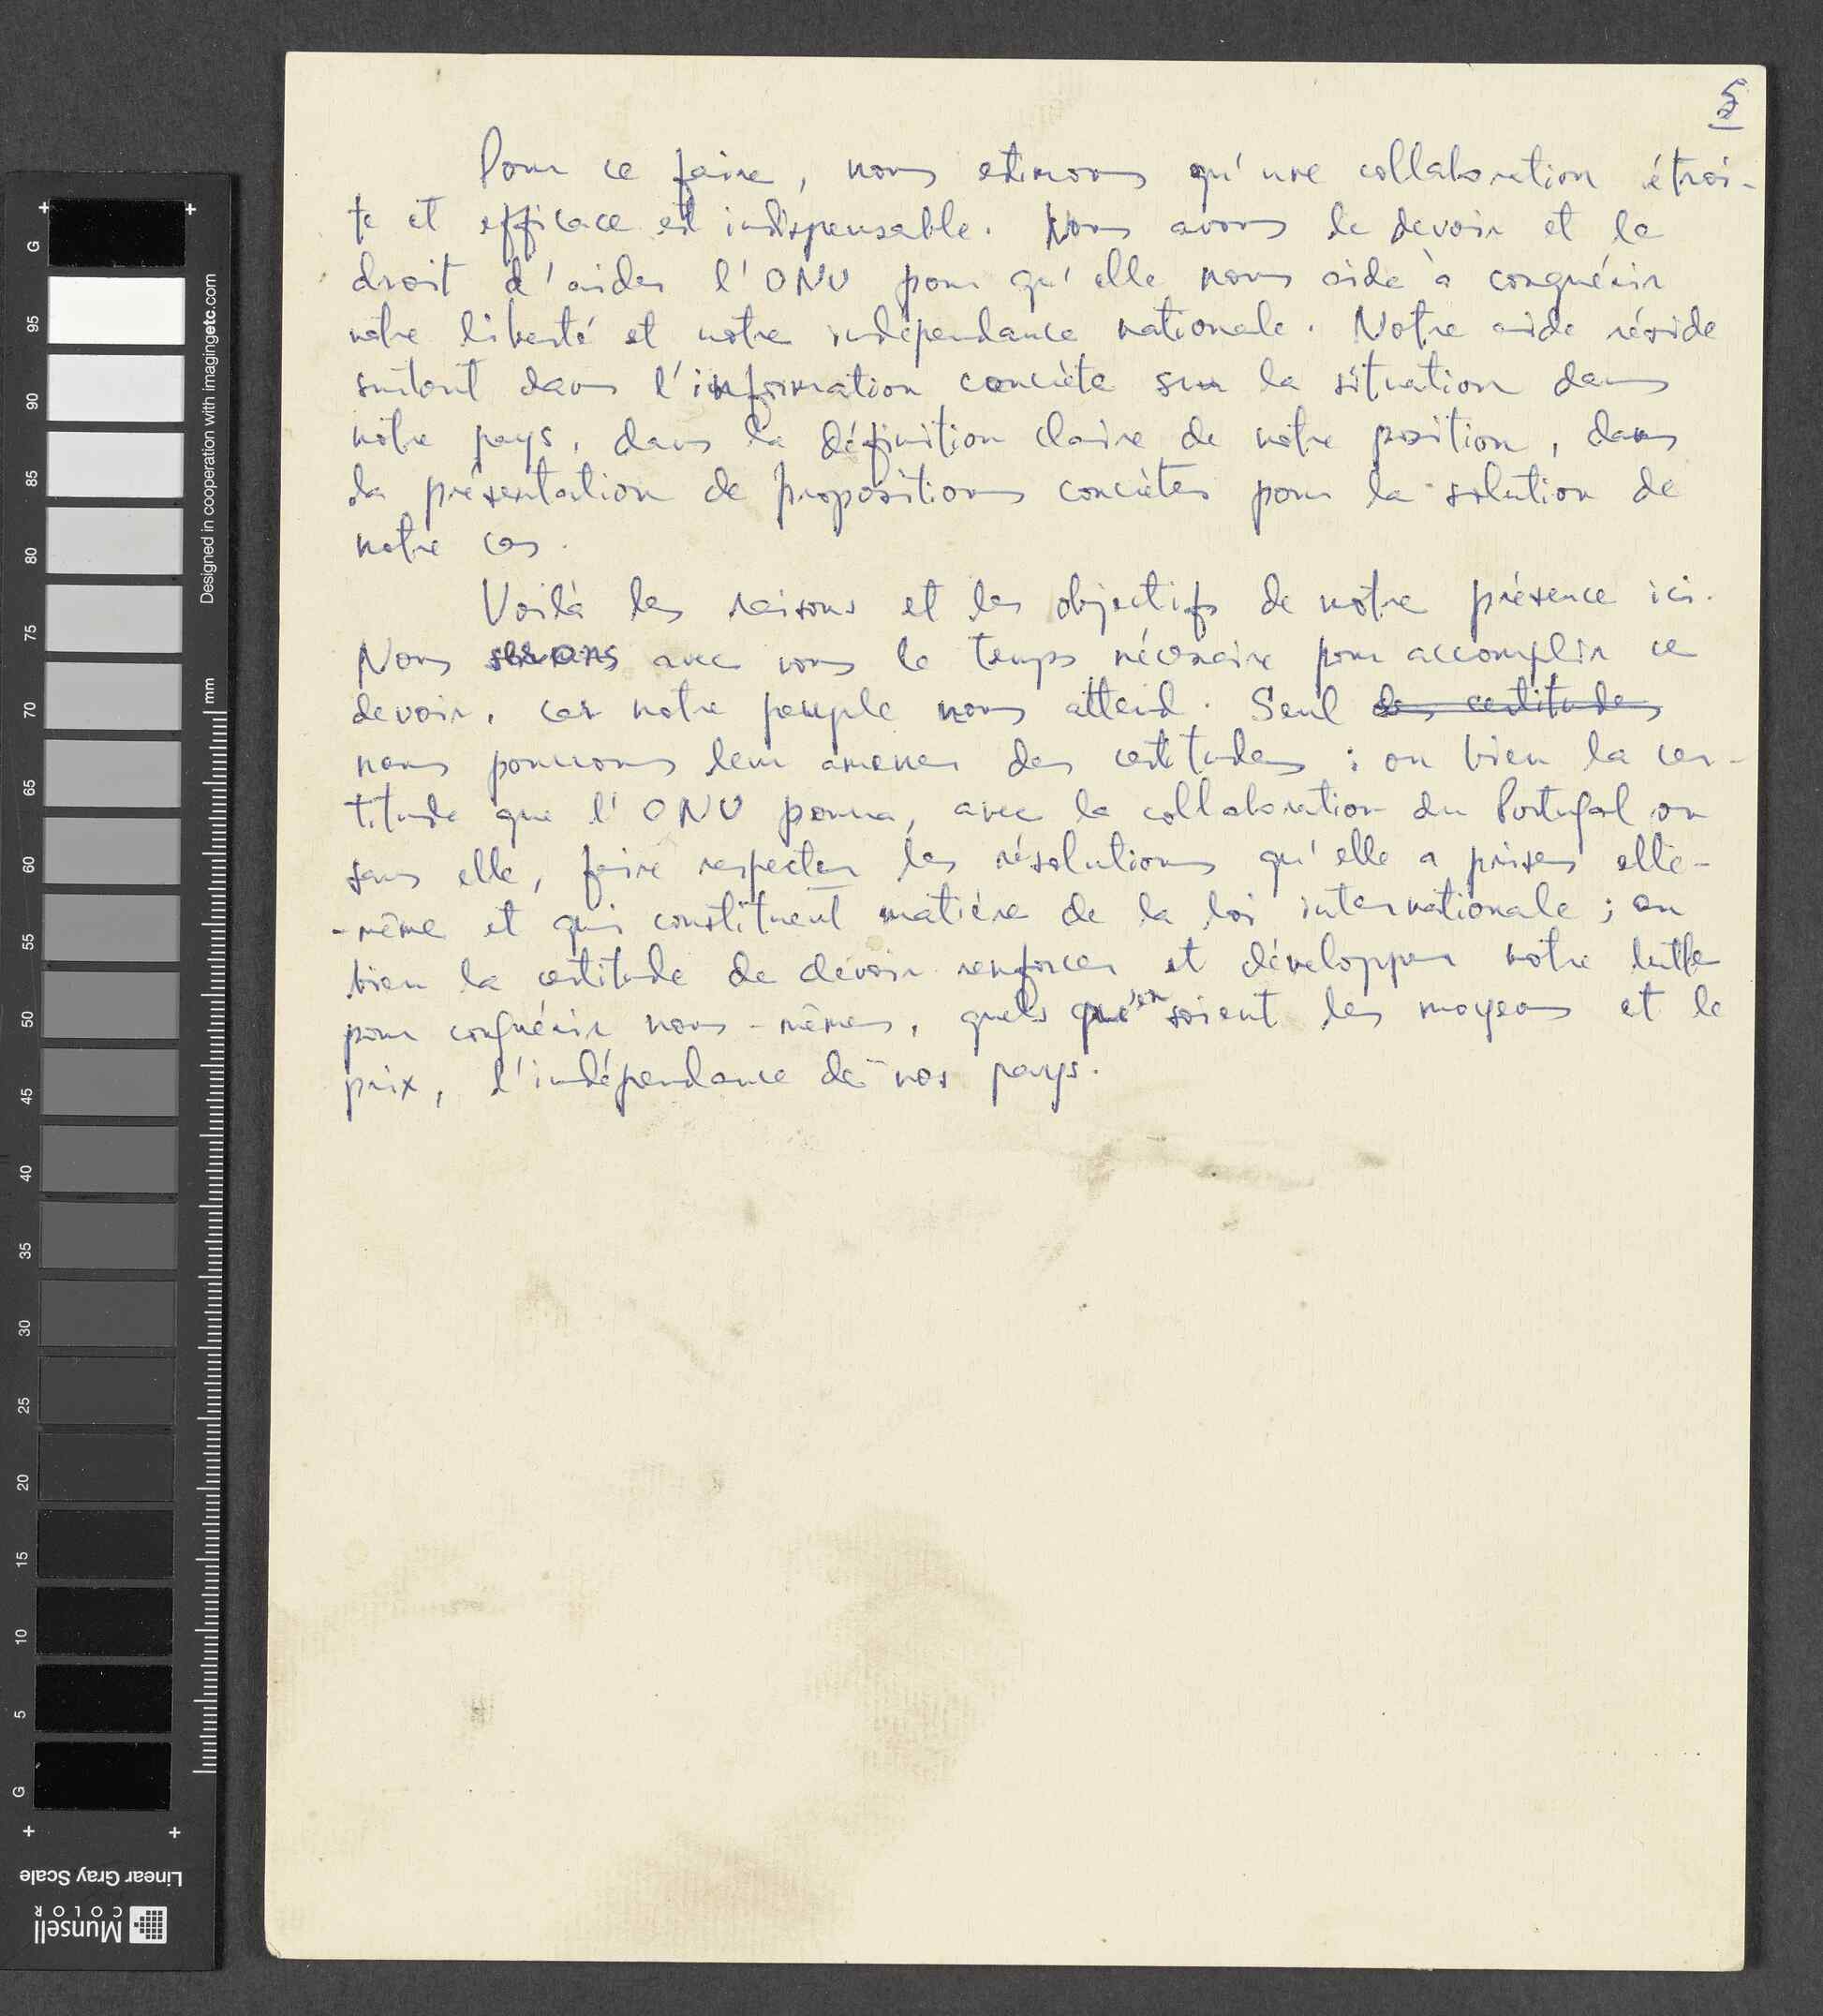 5
Pour ce faire, nous estimons qu'une collaboration étroi-
te et efficace est indispensable. Nous avons le devoir et le
droit d'aider l'ONU pour qu'elle nous aide à conquérir
notre liberté et notre indépendance nationale. Notre aide réside
surtout dans l'information concrète sur la situation dans
notre pays, dans la définition claire de notre position, dans
la présentation de propositions concrètes pour la solution de
notre cas.
Voilà les raisons et les objectifs de notre présence ici.
Nous serons avec vous le temps nécessaire pour accomplir ce
devoir, car notre peuple nous attend. Seul des certitudes
nous pourrons leur amener des certitudes : ou bien la cer-
titude que l'ONU pourra, avec la collaboration du Portugal ou
sans elle, faire respecter les résolutions qu'elle a prises elle-
-même et qui constituent matière de la loi internationale ; ou
bien la certitude de devoir renforcer et développer notre lutte
pour conquérir nous-mêmes, quels qu'en soient les moyens et le
prix, l'indépendance de nos pays.
G
95
90
85
80
75
70
65
60
55
50
45
40
35
30
25
20
15
10
5
G
mm
Designed in cooperation with imagingetc.com
Linear Gray Scale
Munsell
COLOR